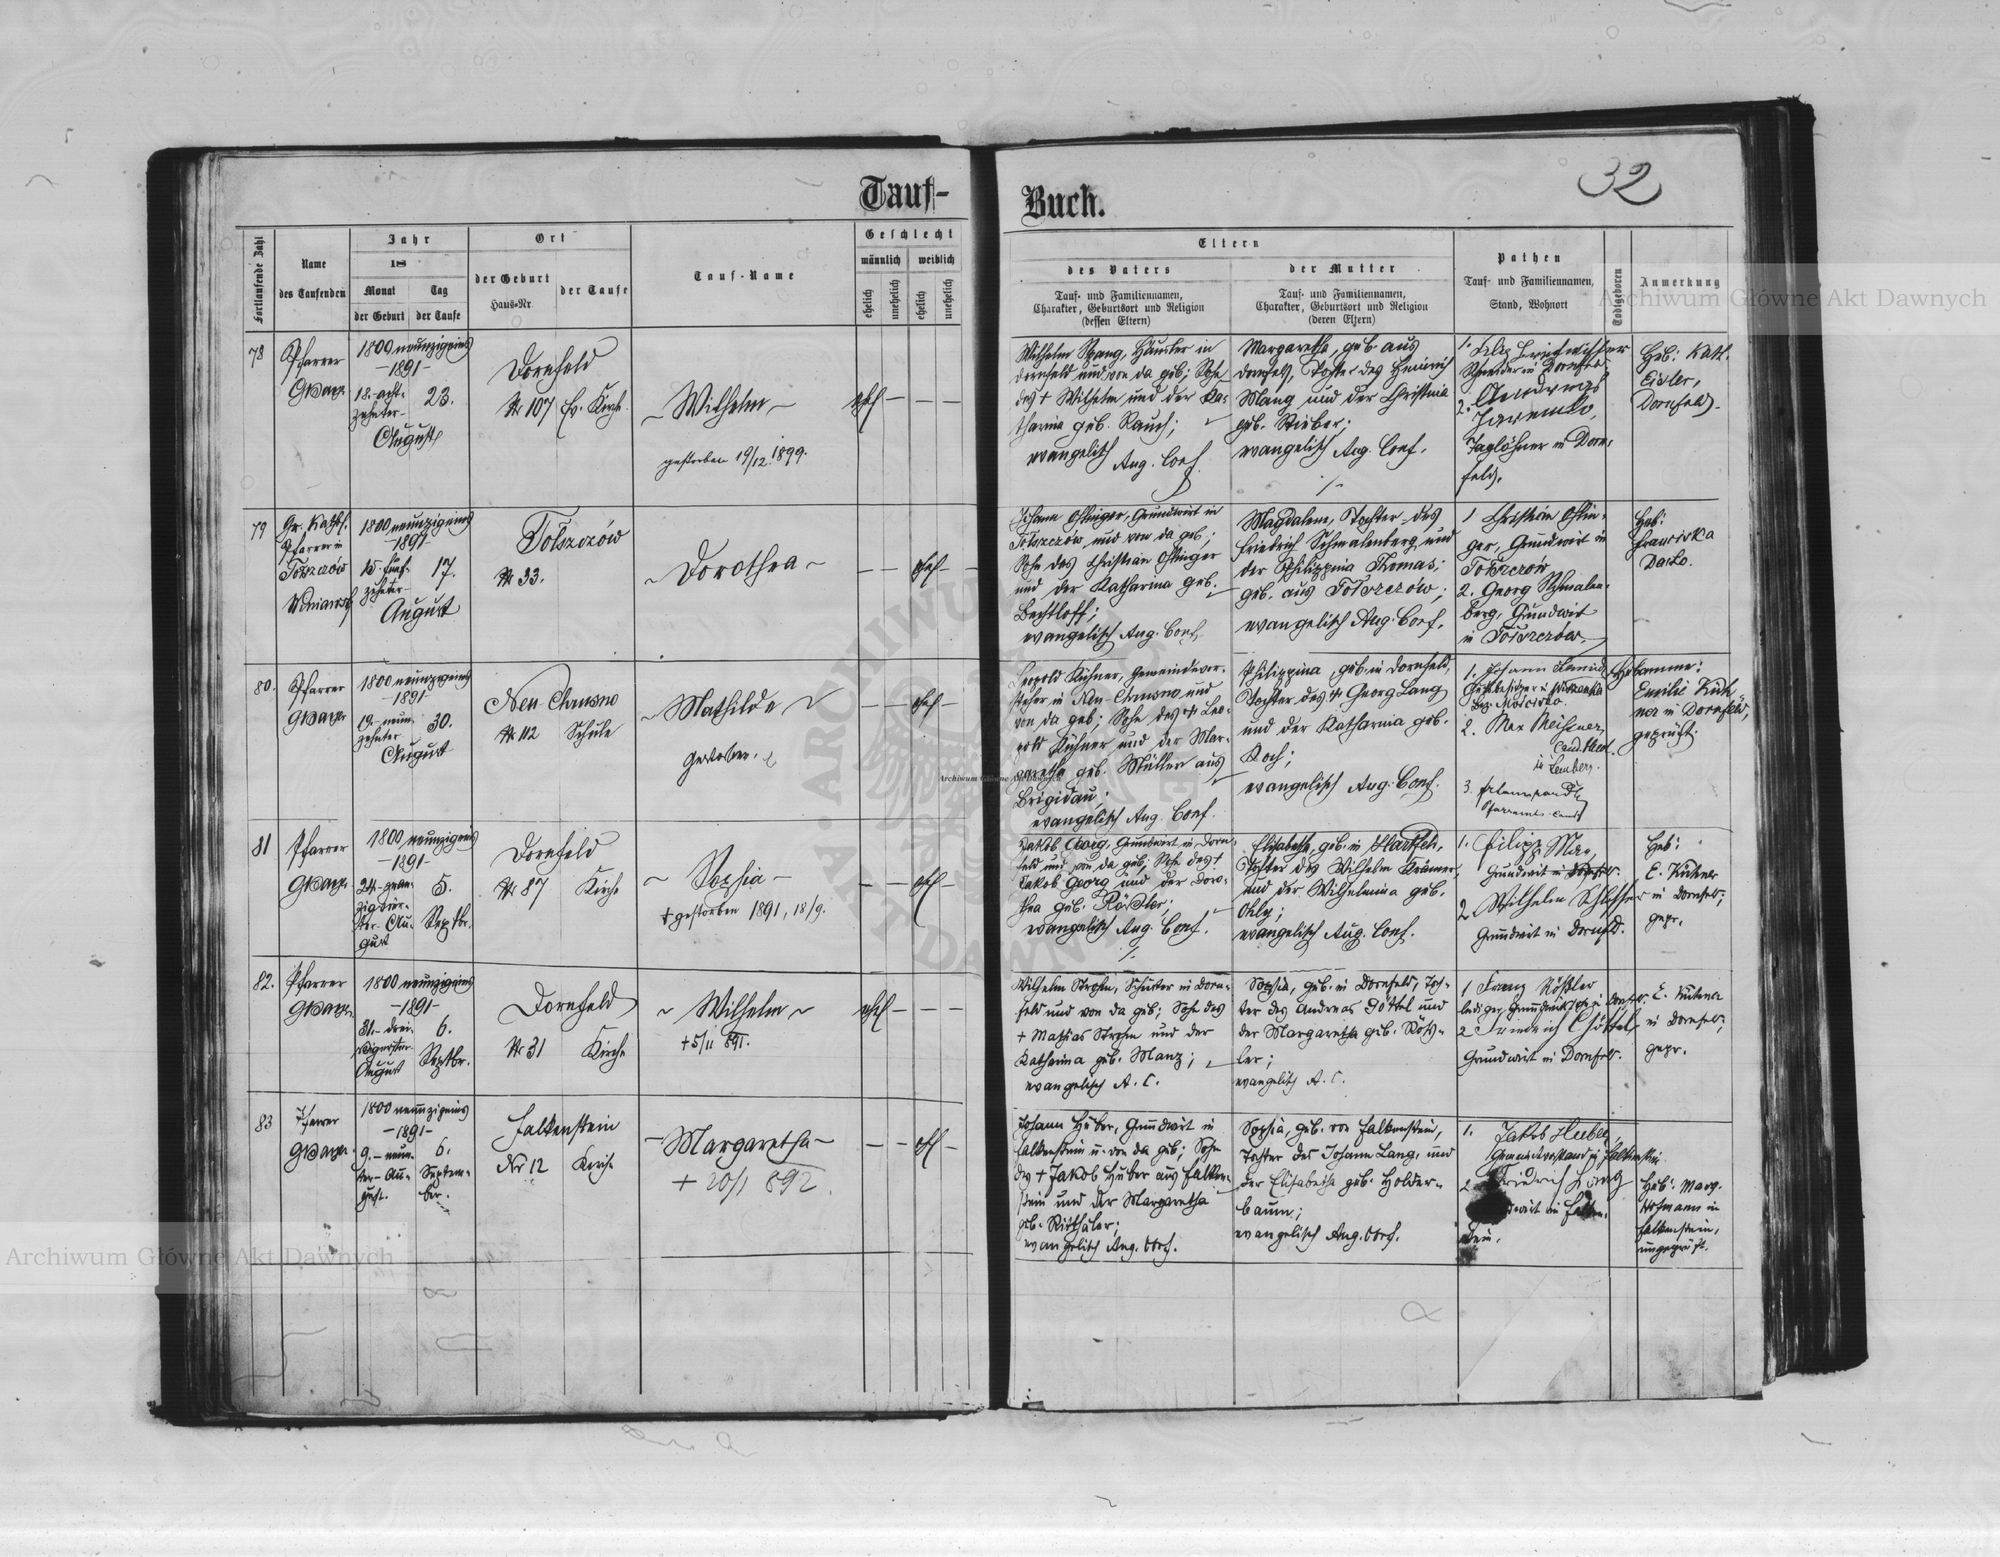 Tauf-
Buch.
32
Fortlaufende Zahl
Name
des Taufenden
Jahr
18
Monat
der Geburt
Tag
der Taufe
Ort
der Geburt
Haus-Nr.
der Taufe
Tauf-Name
Geschlecht
männlich
weiblich
ehelich
unehelich
ehelich
unehelich
Eltern
des Vaters
Tauf- und Familiennamen,
Charakter, Geburtsort und Religion
(dessen Eltern)
der Mutter
Tauf- und Familiennamen,
Charakter, Geburtsort und Religion
(deren Eltern)
Pathen
Tauf- und Familiennamen,
Stand, Wohnort
Todtgeboren
Anmerkung
78
Pfarrer
1800 neunzigeins
-1891-
18.- acht-
zehnter-
August
23.
Dornfeld
Nr 107
Ev. Kirche
Wilhelm
gestorben 19/12. 1899.
ehel
Wilhelm Spang, Häusler in
Dornfeld und von da geb; Sohn
des + Wilhelm und der Ka-
tharina geb. Rauch;
evangelisch
Aug. Conf.
Margaretha, geb. aus
Dornfeld, Tochter des Heinrich
Mang und der Christina
geb. Stieber;
evangelisch Aug. Conf.
Schneider in Dornfeld
2. Andreas
Jaremko,
Taglöhner in Dorn-
feld.
Heb: Kath.
Eisler,
Dornfeld.
79
Gr. Kathl.
Pfarrer in
Tołszczów
1800 neunzigeins
-1891-
15.- fünf-
zehnter-
August
17.
Tołszczów
Nr 33.
Dorothea
ehel
Johann Oflinger, Grundwirt in
Tołszczów und von da geb;
Sohn des Christian Oflinger
und der Katharina geb.
Bechtloff;
evangelisch Aug. Conf.
Magdalena, Tochter des
Friedrich Schmalenberg und
der Philippina Thomas;
geb. aus Tołszczów;
evangelisch Aug. Conf.
1 Christian Oflin-
ger, Grundwirt in
Tołszczów
2. Georg Schmalen-
berg, Grundwirt
in Tołszczów.
Heb:
Franciska
Dasko.
80.
Pfarrer
1800 neunzigeins
-1891-
19.- neun-
zehnter
August
30.
Neu Chrusno
Nr 112
Schule
Mathilde
Gestorben.
ehel
Leopold Kühner, Gemeindevor-
steher in Neu-Chrusno und
von da geb; Sohn des + Leo-
pold Kühner und der Mar-
garetha geb. Müller aus
Brigidau;
evangelisch Aug. Conf.
Philippina, geb. in Dornfeld,
Tochter des + Georg Lang
und der Katharina geb.
Koch;
evangelisch Aug. Conf.
2. Max Meissner,
Cand. theol.
in Lemberg.
Hebamme:
Emilie Küh-
ner in Dornfeld,
geprüft.
81
Pfarrer
1800 neunzigeins
-1891-
5.
Septbr.
Dornfeld
Nr 87
Kirche
Sophia
+ gestorben 1891, 18/9.
ehel
Jakob Georg, Grundwirt in Dorn-
feld und von da geb; Sohn des +
Jakob Georg und der Doro-
thea geb. Rößler;
evangelisch Aug. Conf.
Elisabetha, geb. in Hartfeld,
Tochter des Wilhelm Krämer
und der Wilhelmina geb.
Ohly;
evangelisch Aug. Conf.
1. Filipp May,
Grundwirt in Dornfeld.
2. Wilhelm Schlosser
Grundwirt in Dornfeld.
Heb:
E. Kühner
in Dornfeld;
gepr.
82.
Pfarrer
1800 neunzigeins
-1891-
31.- drei-
August
6.
Septbr.
Dornfeld
Nr 31
Kirche
Wilhelm
+ 5/11 891.
ehel
Wilhelm Strohm, Schuster in Dorn-
feld und von da geb; Sohn des
+ Mathias Strohm und der
Katharina geb. Manz;
evangelisch A. C.
Sophia, geb. in Dornfeld, Toch-
ter des Andreas Göttel und
der Margaretha geb. Röss-
ler;
evangelisch A. C.
1 Franz Rößler
2 Friedrich Göttel,
Grundwirt in Dornfeld.
E. Kühner
in Dornfeld;
gepr.
83
Pfarrer
1800 neunzigeins
-1891-
9.- neun-
ter- Au-
gust.
6.
Septem-
ber.
Falkenstein
Nr 12
Kirche
Margaretha
+ 20/1 892.
ehel
Johann Huber, Grundwirt in
Falkenstein u. von da geb; Sohn
des + Jakob Huber aus Falken-
stein und der Margaretha
geb. Rithaler;
evangelisch Aug. Conf.
Sophia, geb. von Falkenstein,
Tochter des Johann Lang, und
der Elisabetha geb. Holder-
baum;
evangelisch Aug. Conf.
1. Jakob Huber
Gemeindevorstand in Falkenstein
2. Friedrich Lang
Grundwirt in Falken-
stein.
Heb: Marg.
Hofmann in
Falkenstein,
ungeprüft.
Archiwum Główne Akt Dawnych
Archiwum Główne Akt Dawnych
Archiwum Główne Akt Dawnych